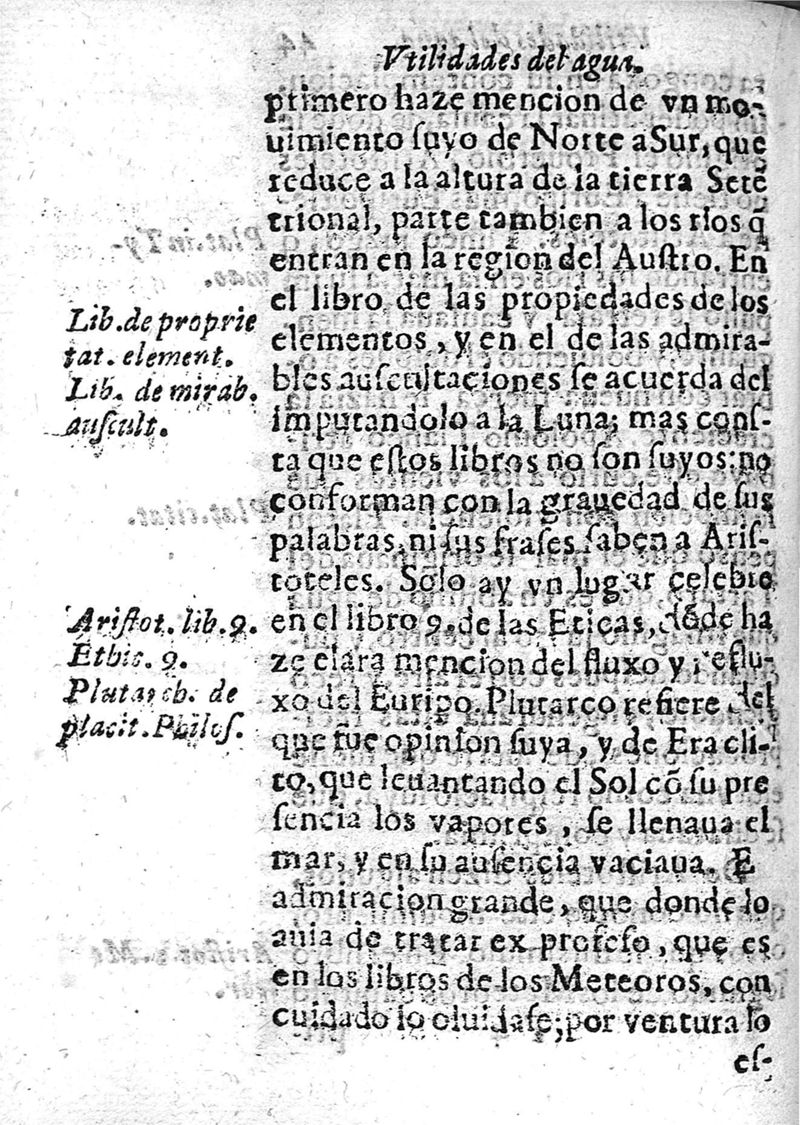 Vtilidades del agua.
primero haze mencion de vn mo-
uimiento ſuyo de Norte a Sur, que
reduce a la altura de la tierra Setẽ
trional, parte tambien a los rios q̃
entran en la region del Auſtro. En
el libro de las propiedades de los
elementos, y en el de las admira-
bles auſcultaciones ſe acuerda del
imputandolo a la Luna; mas conſ-
ta que eſtos libros no ſon ſuyos: no
conforman con la grauedad de ſus
palabras, ni ſus fraſes ſaben a Ariſ-
toteles. Solo ay vn lugar celebre
en el libro 9. de las Eticas, dõde ha
ze clara mencion del fluxo y reflu-
xo del Euripo. Plutarco refiere del
que fue opinion ſuya, y de Eracli-
to, que leuantando el Sol cõ ſu pre
ſencia los vapores, ſe llenaua el
mar, y en ſu auſencia vaciaua. E
admiracion grande, que donde lo
auia de tratar ex profeſo, que es
en los libros de los Meteoros, con
cuidado lo oluidaſe; por ventura lo
eſ-
Lib. de proprie
tat. element.
Lib. de mirab.
auſcult.
Ariſtot. lib. 9.
Ethic. 9.
Plutarch. de
placit. Philoſ.